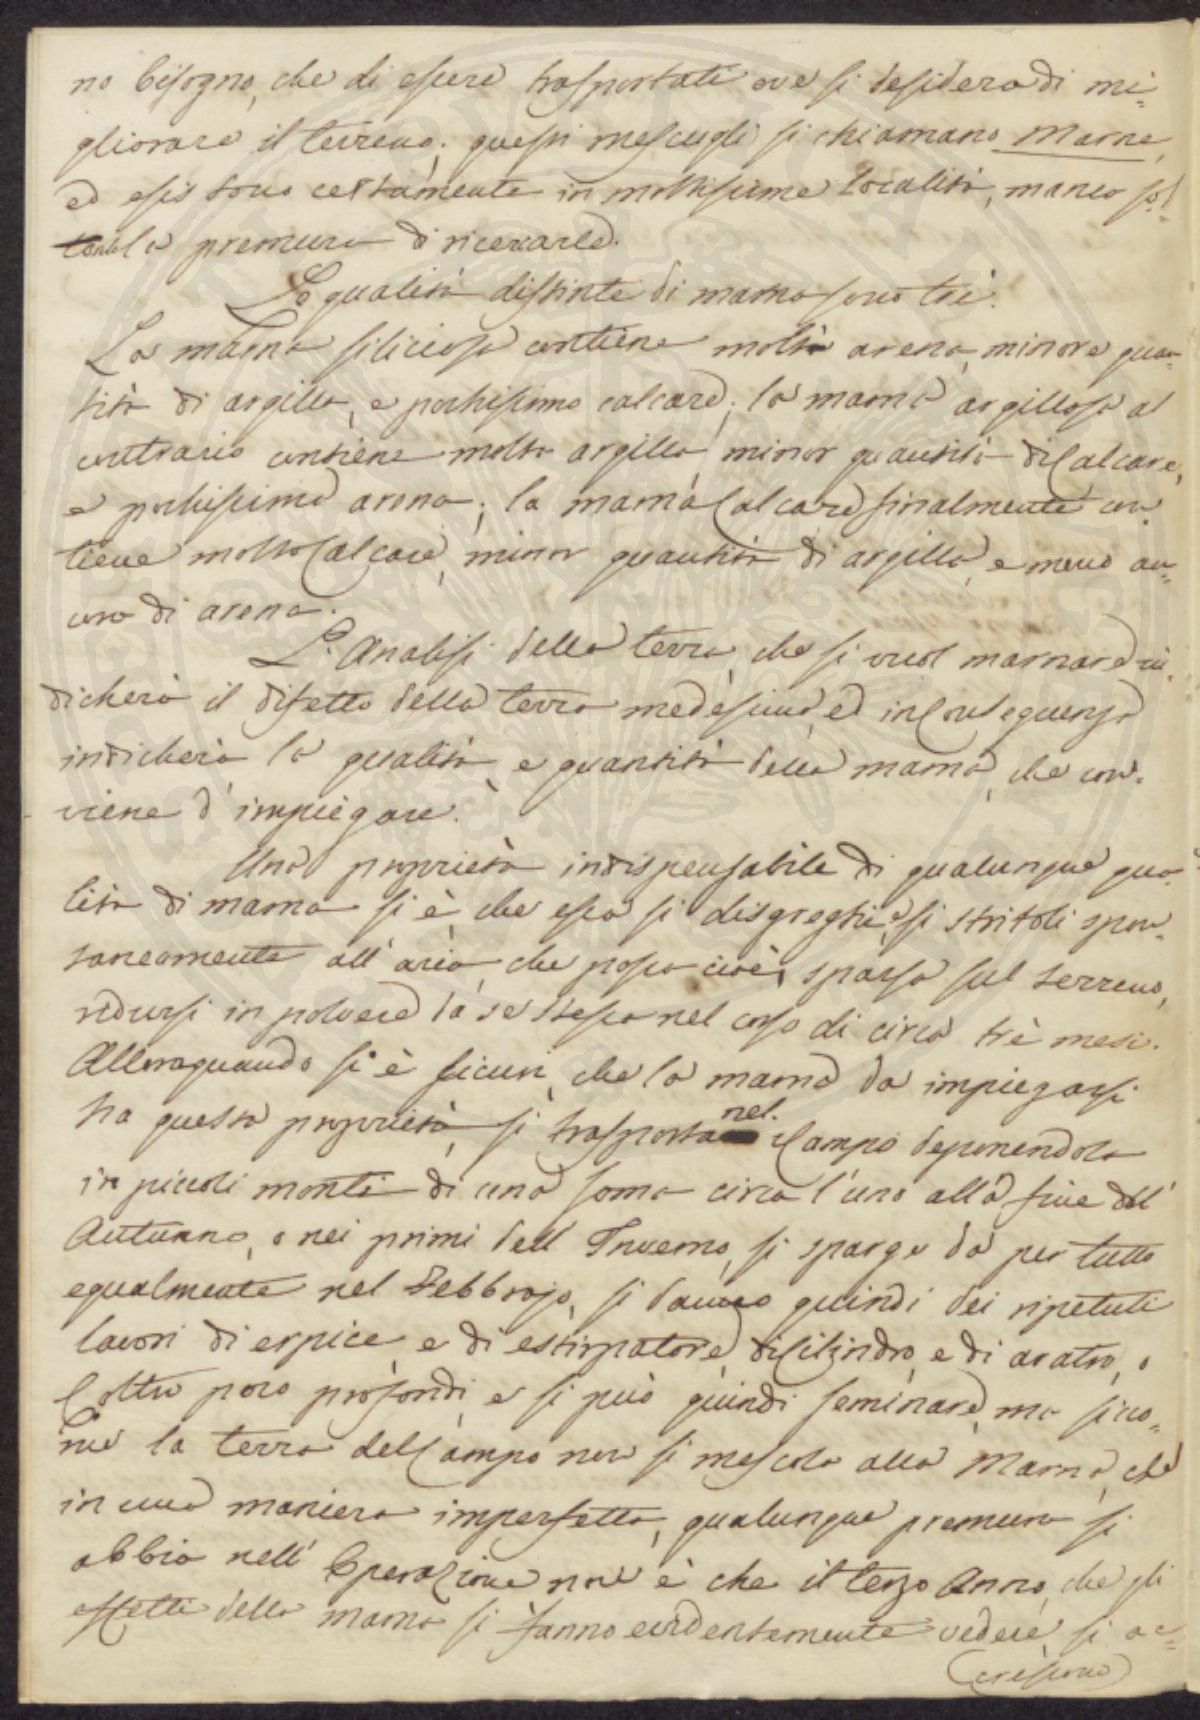 no bisogno, che di essere trasportati ove si desidera di mi=
gliorare il terreno; questi mescugli si chiamano Marne,
ed esistono certamente in moltissime località, manca sol=
tanto la premura di ricercarle.
Le qualità distinte di marna sono tré.
La marna siliciosa contiene molta arena, minore quan=
tità di argilla, e pochissimo calcare; la marna argillosa al
contrario contiene molta argilla, minor quantità di Calcare,
e pochissima arena; la marna Calcare finalmente con=
tiene molto Calcare, minor quantità di argilla, e meno an=
cora di arena.
L'Analisi della terra, che si vuol marnare in=
dicherà il difetto della terra medesima, ed in Conseguenza
indicherà la qualità, e quantità della marna, che con=
viene d'impiegare.
Una proprietà indispensabile di qualunque qua=
lità di marna si è che essa si disgreghi, e si stritoli spon=
taneamente all'aria, che possa cioè, sparsa sul terreno,
ridursi in polvere da se stessa nel corso di circa tré mesi.
Alloraquando si è sicuri, che la marna da impiegarsi
ha questa proprietà, si trasporta nel Campo deponendola
in piccoli monti di una soma circa l'uno alla fine dell'
Autunno, o nei primi dell Inverno, si sparge da per tutto
egualmente nel Febbrajo, si danno quindi dei ripetuti
lavori di erpice e di estirpatore, di Cilindro, e di aratro, o
Coltro poco profondi, e si può quindi seminare, ma sicco=
me la terra del Campo non si mescola alla Marna, che
in una maniera imperfetta, qualunque premura si
abbia nell'Operazione non è che il terzo Anno, che gli
effetti della marna si fanno evidentemente vedere, si ac=
(crescono)